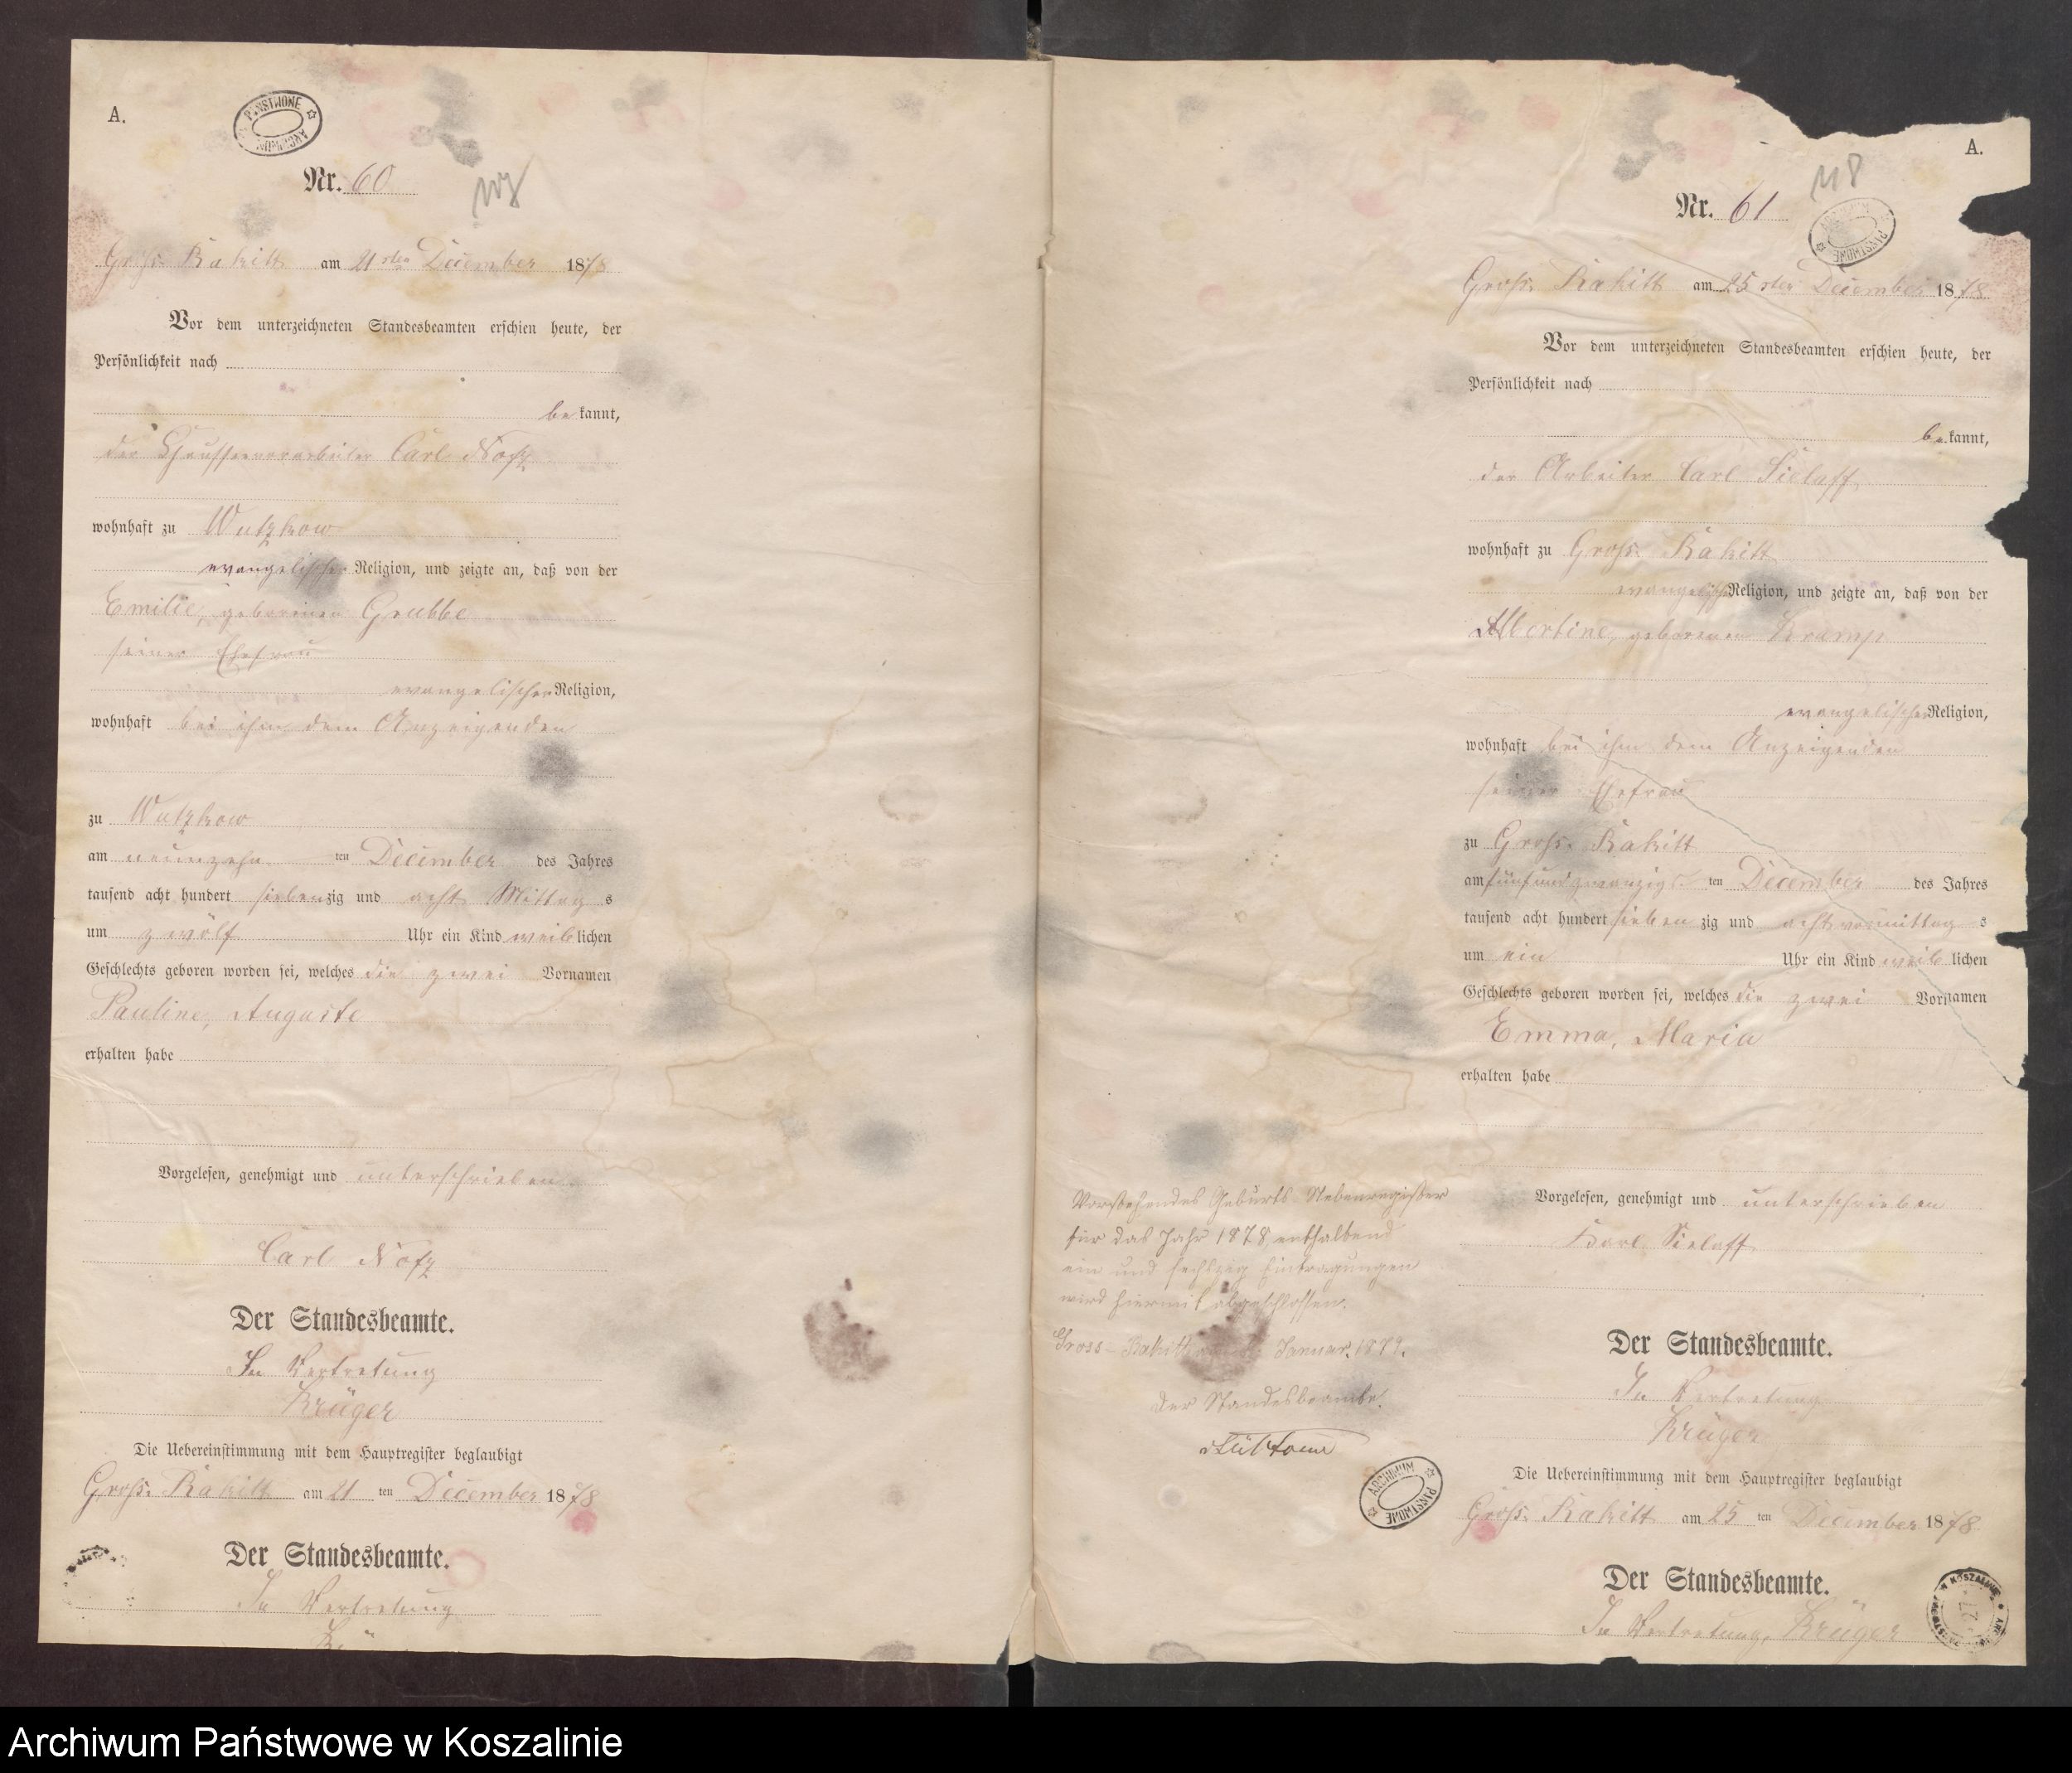 A.
PAŃSTWOWE ARCHIWUM
Nr. 60
Groß Rakitt am 21sten December 1878
Vor dem unterzeichneten Standesbeamten erschien heute, der
Persönlichkeit nach
bekannt,
der Chausseevorarbeiter Carl Notz
wohnhaft zu Wutzkow
evangelischer Religion, und zeigte an, daß von der
Emilie, geborenen Grubbe
seiner Ehefrau
evangelischer Religion,
wohnhaft bei ihm dem Anzeigenden
zu Wutzkow
am neunzehn ten December des Jahres
tausend acht hundert siebenzig und acht Mittags
um zwölf Uhr ein Kind weiblichen
Geschlechts geboren worden sei, welches die zwei Vornamen
Pauline, Auguste
erhalten habe
Vorgelesen, genehmigt und unterschrieben
Carl Notz
Der Standesbeamte.
In Vertretung
Krüger
Die Uebereinstimmung mit dem Hauptregister beglaubigt
Groß Rakitt am 21 ten December 1878
Der Standesbeamte.
In Vertretung
Vorstehendes Geburts Nebenregister
für das Jahr 1878 enthaltend
ein und sechszig Eintragungen
wird hiermit abgeschlossen.
Gross-Rakitt Januar 1879.
Der Standesbeamte.
ARCHIWUM PAŃSTWOWE
A.
118
Nr. 61
ARCHIWUM PAŃSTWOWE
Groß Rakitt am 25sten December 1878
Vor dem unterzeichneten Standesbeamten erschien heute, der
Persönlichkeit nach
bekannt,
der Arbeiter Carl Sielaff
wohnhaft zu Groß Rakitt
evangelischer Religion, und zeigte an, daß von der
Albertine, geborenen Kramp
evangelischer Religion,
wohnhaft bei ihm dem Anzeigenden
seiner Ehefrau
zu Groß Rakitt
am fünfundzwanzigs ten December des Jahres
tausend acht hundert siebenzig und acht vormittags
um ein Uhr ein Kind weiblichen
Geschlechts geboren worden sei, welches die zwei Vornamen
Emma, Maria
erhalten habe
Vorgelesen, genehmigt und unterschrieben
Karl Sielaff
Der Standesbeamte.
In Vertretung
Krüger
Die Uebereinstimmung mit dem Hauptregister beglaubigt
Groß Rakitt am 25 ten December 1878
Der Standesbeamte.
In Vertretung, Krüger
Archiwum Państwowe w Koszalinie